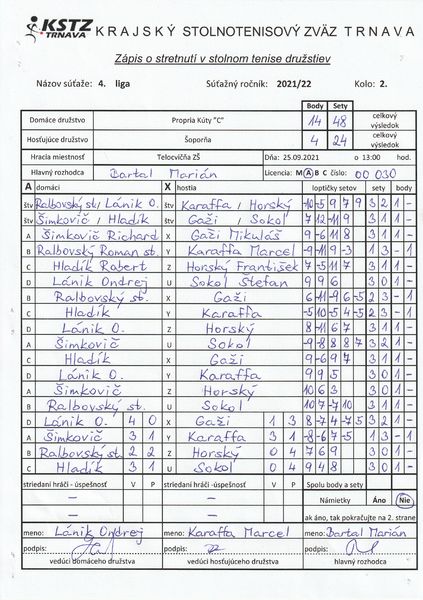 KSTZ TRNAVA KRAJSKÝ STOLNOTENISOVÝ ZVÄZ TRNAVA
Zápis o stretnutí v stolnom tenise družstiev
Názov súťaže: 4. liga Súťažný ročník: 2021/22 Kolo: 2.
Body Sety
Domáce družstvo Propria Kúty "C" 14 48 celkový výsledok
Hosťujúce družstvo Šoporňa 4 24 celkový výsledok
Hracia miestnosť Telocvičňa ZŠ Dňa: 25.09.2021 o 13:00 hod.
Hlavný rozhodca Bartal Marián Licencia: M A B C číslo: 00 030
A domáci X hostia loptičky setov sety body
štv Ralbovský st., Lánik O. štv Karaffa, Horský -10 -5 9 7 9 3 2 1 -
štv Šimkovič, Hladík štv Gaži, Sokol 7 -12 11 9 3 1 1 -
A Šimkovič Richard X Gaži Mikuláš 9 -6 11 8 3 1 1 -
B Ralbovský Roman st. Y Karaffa Marcel -9 -11 9 -3 1 3 - 1
C Hladík Robert Z Horský František 7 -5 11 7 3 1 1 -
D Lánik Ondrej U Sokol Štefan 9 9 6 3 0 1 -
B Ralbovský st. X Gaži 6 -11 -9 6 -5 2 3 - 1
C Hladík Y Karaffa -5 10 -5 4 -5 2 3 - 1
D Lánik O. Z Horský 8 -11 6 7 3 1 1 -
A Šimkovič U Sokol -9 8 -8 8 7 3 2 1 -
C Hladík X Gaži 9 -6 9 7 3 1 1 -
D Lánik O. Y Karaffa 9 9 5 3 0 1 -
A Šimkovič Z Horský 10 6 3 3 0 1 -
B Ralbovský st. U Sokol 10 7 -7 10 3 1 1 -
D Lánik O. 4 0 X Gaži 1 3 8 -7 4 -7 5 3 2 1 -
A Šimkovič 3 1 Y Karaffa 3 1 -8 -6 7 -5 1 3 - 1
B Ralbovský st. 2 2 Z Horský 0 4 7 6 9 3 0 1 -
C Hladík 3 1 U Sokol 0 4 9 4 8 3 0 1 -
striedaní hráči - úspešnosť V P striedaní hráči - úspešnosť V P Spolu body a sety
– – Námietky Áno Nie
– – ak áno, tak pokračujte na 2. strane
meno: Lánik Ondrej meno: Karaffa Marcel meno: Bartal Marián
podpis: podpis: podpis:
vedúci domáceho družstva vedúci hosťujúceho družstva hlavný rozhodca